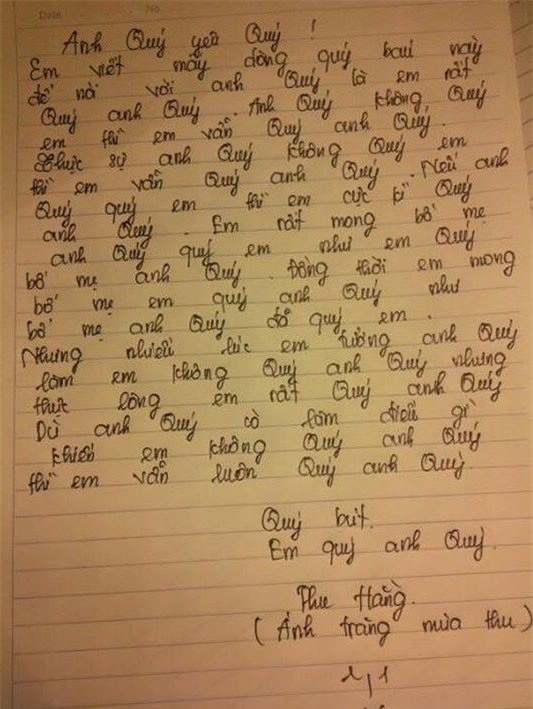 Date No.
Anh Quý yêu Quý !
Em viết mấy dòng quý bai này
để nói với anh Quý là em rất
Quý anh Quý. Anh Quý không Quý
em thì em vẫn Quý anh Quý.
Thực sự anh Quý không Quý em
thì em vẫn Quý anh Quý. Nếu anh
Quý quý em thì em cực kì Quý
anh Quý. Em rất mong bố mẹ
anh Quý quý em như em Quý
bố mẹ anh Quý. Đồng thời em mong
bố mẹ em quý anh Quý như
bố mẹ anh Quý đã quý em.
Nhưng nhiều lúc em tưởng anh Quý
làm em không Quý anh Quý nhưng
thực lòng em rất Quý anh Quý
Dù anh Quý có làm điều gì
khiến em không Quý anh Quý
thì em vẫn luôn Quý anh Quý.
Quý bút.
Em quý anh Quý.
Thu Hằng.
( Ánh trăng mùa thu )